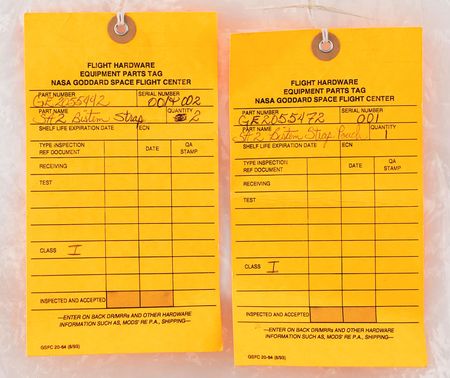 FLIGHT HARDWARE
EQUIPMENT PARTS TAG
NASA GODDARD SPACE FLIGHT CENTER
PART NUMBER SERIAL NUMBER
GE2055442 002
PART NAME QUANTITY
SA2 Bistem Strap 2
SHELF LIFE EXPIRATION DATE ECN
TYPE INSPECTION
REF DOCUMENT DATE QA
STAMP
RECEIVING
TEST
CLASS I
INSPECTED AND ACCEPTED
—ENTER ON BACK DR/MRRs AND OTHER HARDWARE
INFORMATION SUCH AS, MODS' RE P.A., SHIPPING—
GSFC 20-64 (6/93)
FLIGHT HARDWARE
EQUIPMENT PARTS TAG
NASA GODDARD SPACE FLIGHT CENTER
PART NUMBER SERIAL NUMBER
GE2055472 001
PART NAME QUANTITY
SA2 Bistem Strap Pouch 1
SHELF LIFE EXPIRATION DATE ECN
TYPE INSPECTION
REF DOCUMENT DATE QA
STAMP
RECEIVING
TEST
CLASS I
INSPECTED AND ACCEPTED
—ENTER ON BACK DR/MRRs AND OTHER HARDWARE
INFORMATION SUCH AS, MODS' RE P.A., SHIPPING—
GSFC 20-64 (6/93)